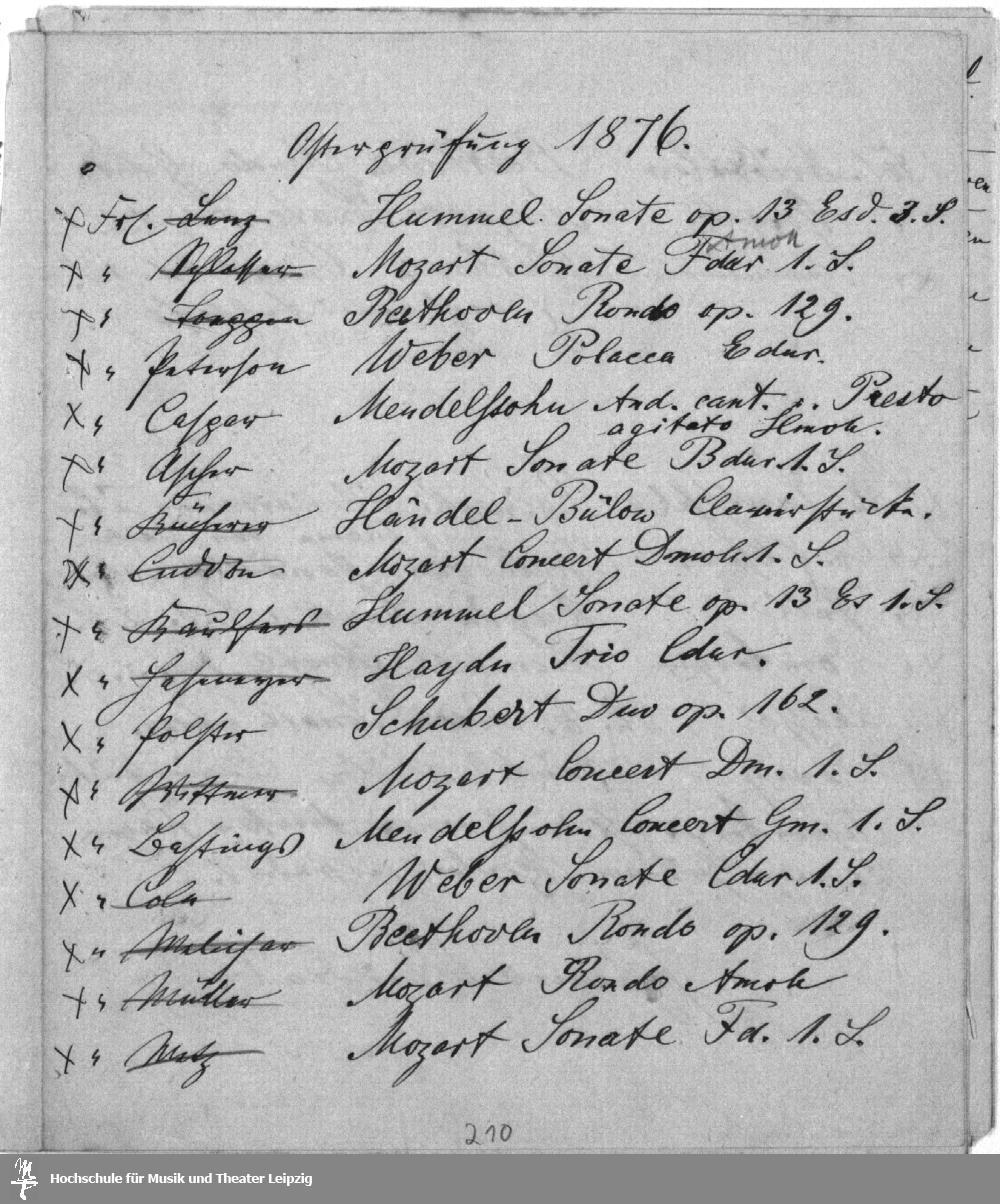 Osterprüfung 1876.
x Frl. Lenz Hummel. Sonate op. 13 Esd. 3. S.
Amoll
x " Schlosser Mozart Sonate Fdur 1. S.
x " Beethoven Rondo op. 129.
x " Peterson Weber Polacca Edur.
x " Caspar Mendelssohn And. cant. u. Presto
agitato Hmoll.
x " Ascher Mozart Sonate Bdur 1. S.
x " Händel-Bülow Clavierstücke.
x " Cuddon Mozart Concert Dmoll 1. S.
x " Hummel Sonate op. 13 Es 1. S.
x " Hasemeyer Haydn Trio Cdur.
x " Polster Schubert Duo op. 162.
x " Wittmer Mozart Concert Dm. 1. S.
x " Hastings Mendelssohn Concert Gm. 1. S.
x " Cole Weber Sonate Cdur 1. S.
x " Beethoven Rondo op. 129.
x " Müller Mozart Rondo Amoll
x " Metz Mozart Sonate Fd. 1. S.
210
Hochschule für Musik und Theater Leipzig